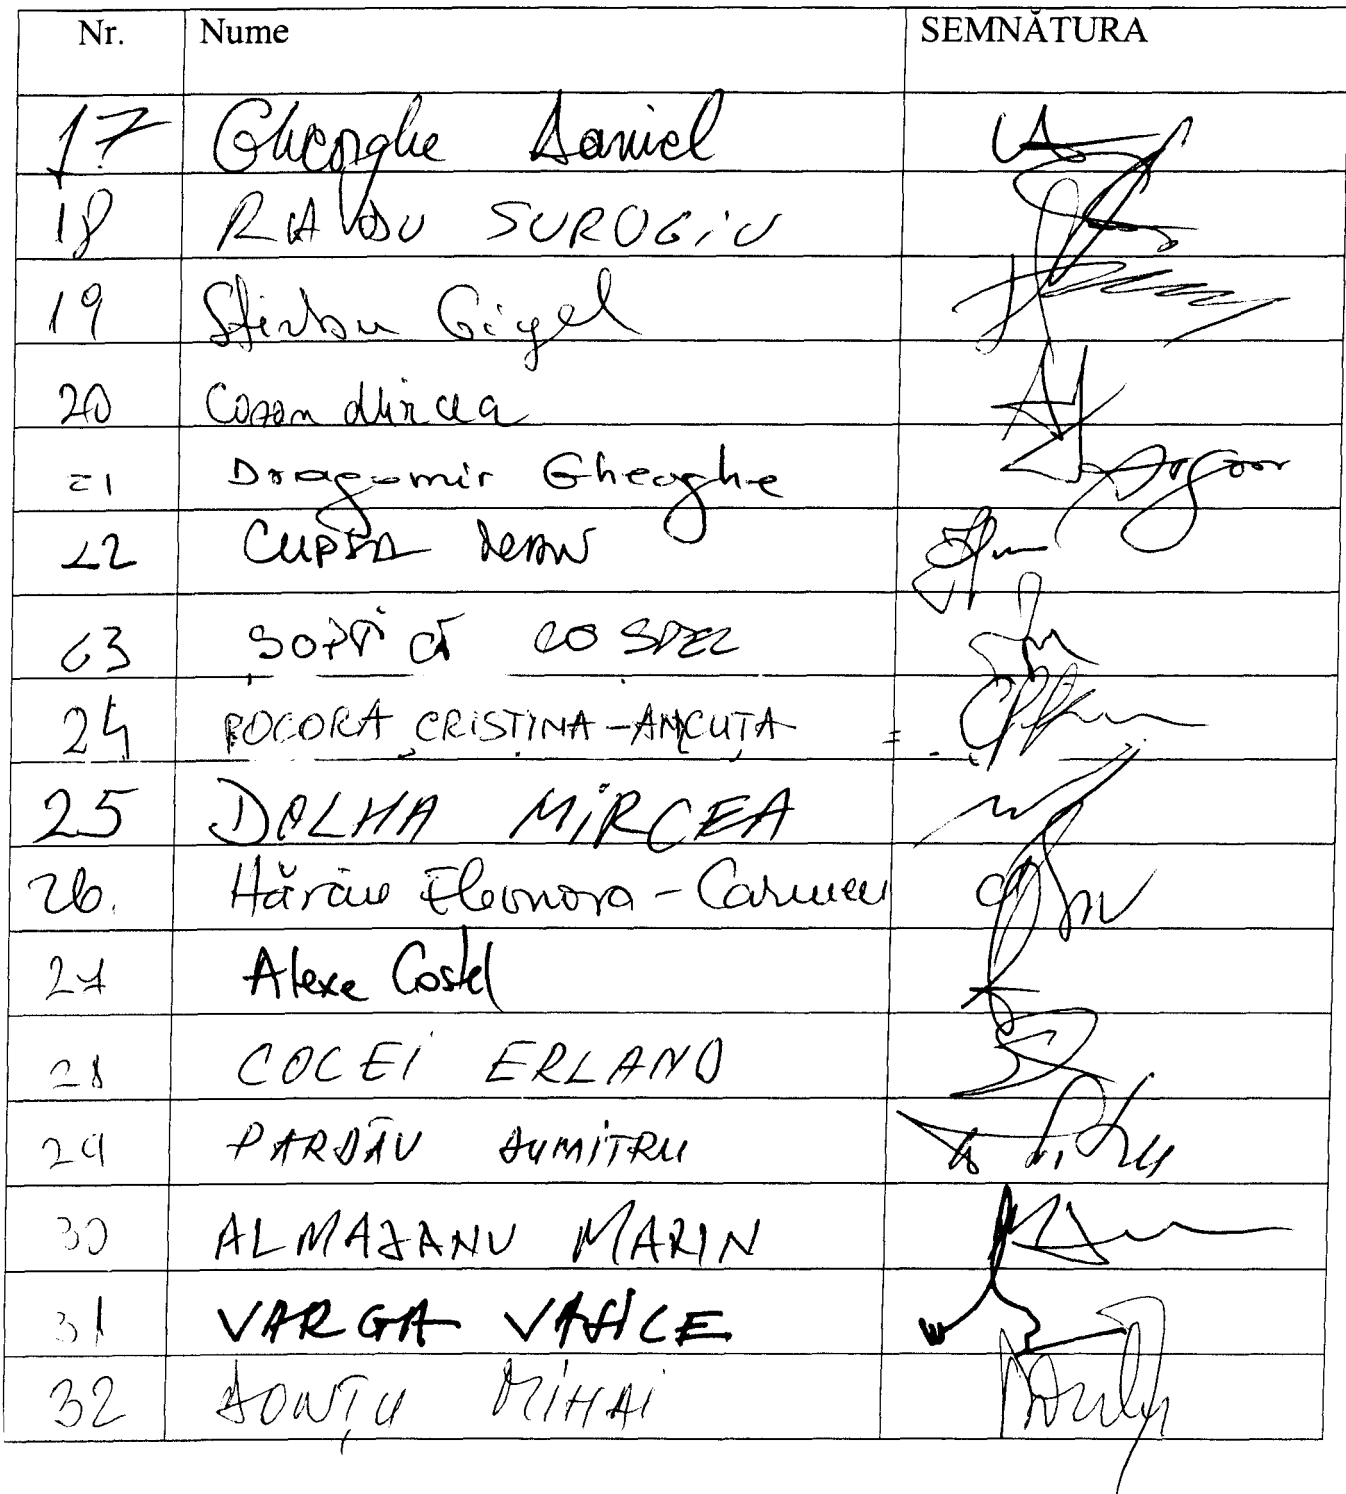 Nr. Nume SEMNĂTURA
17 Gheorghe Daniel
18 RADU SUROGIU
19 Stirbu Gigel
20 Cozan Mircea
21 Dragomir Gheorghe
22 CUPȘA IOAN
23 ȘOPTICĂ COSTEL
24 POCORA CRISTINA-ANCUȚA
25 DOLHA MIRCEA
26. Hărău Eleonora-Carmen
27 Alexe Costel
28 COCEI ERLAND
29 PARDĂU DUMITRU
30 ALMAJANU MARIN
31 VARGA VASILE
32 DONȚU MIHAI